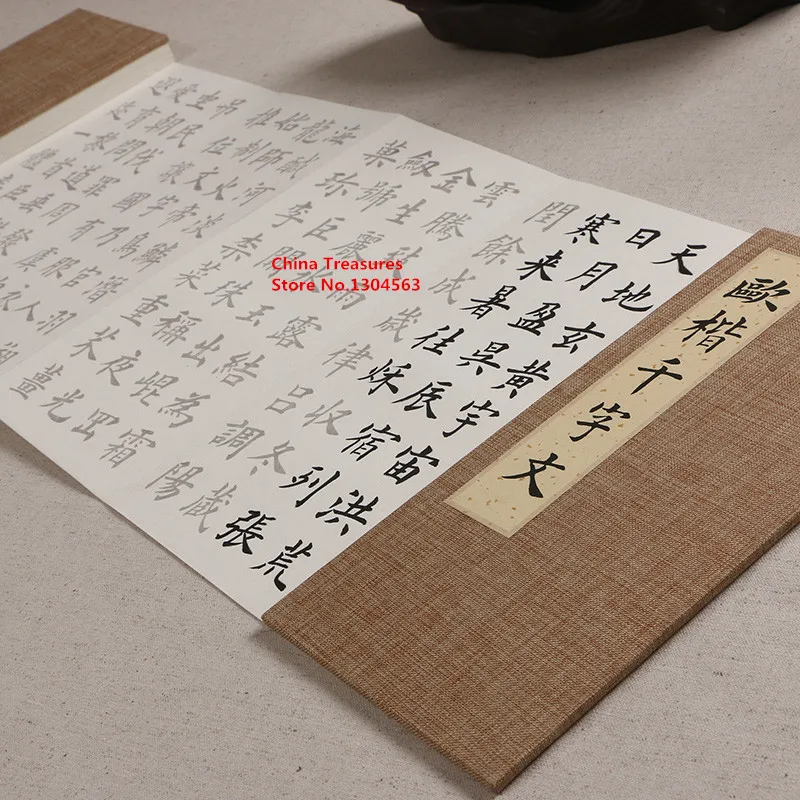 歐楷千字文
天地玄黃宇宙洪荒
日月盈昃辰宿列張
寒来暑往秌收冬藏
閏餘成歲律呂調陽
雲騰致雨露結為霜
金生麗水玉出崐岡
劔號巨闕珠稱夜光
菓珍李柰菜重芥薑
海鹹河淡鱗潛羽翔
龍師火帝鳥官人
始制文字乃服衣
推位讓國有虞
吊民伐罪周發
坐朝問道
愛育黎首臣
遐迩一體
China Treasures
Store No.1304563